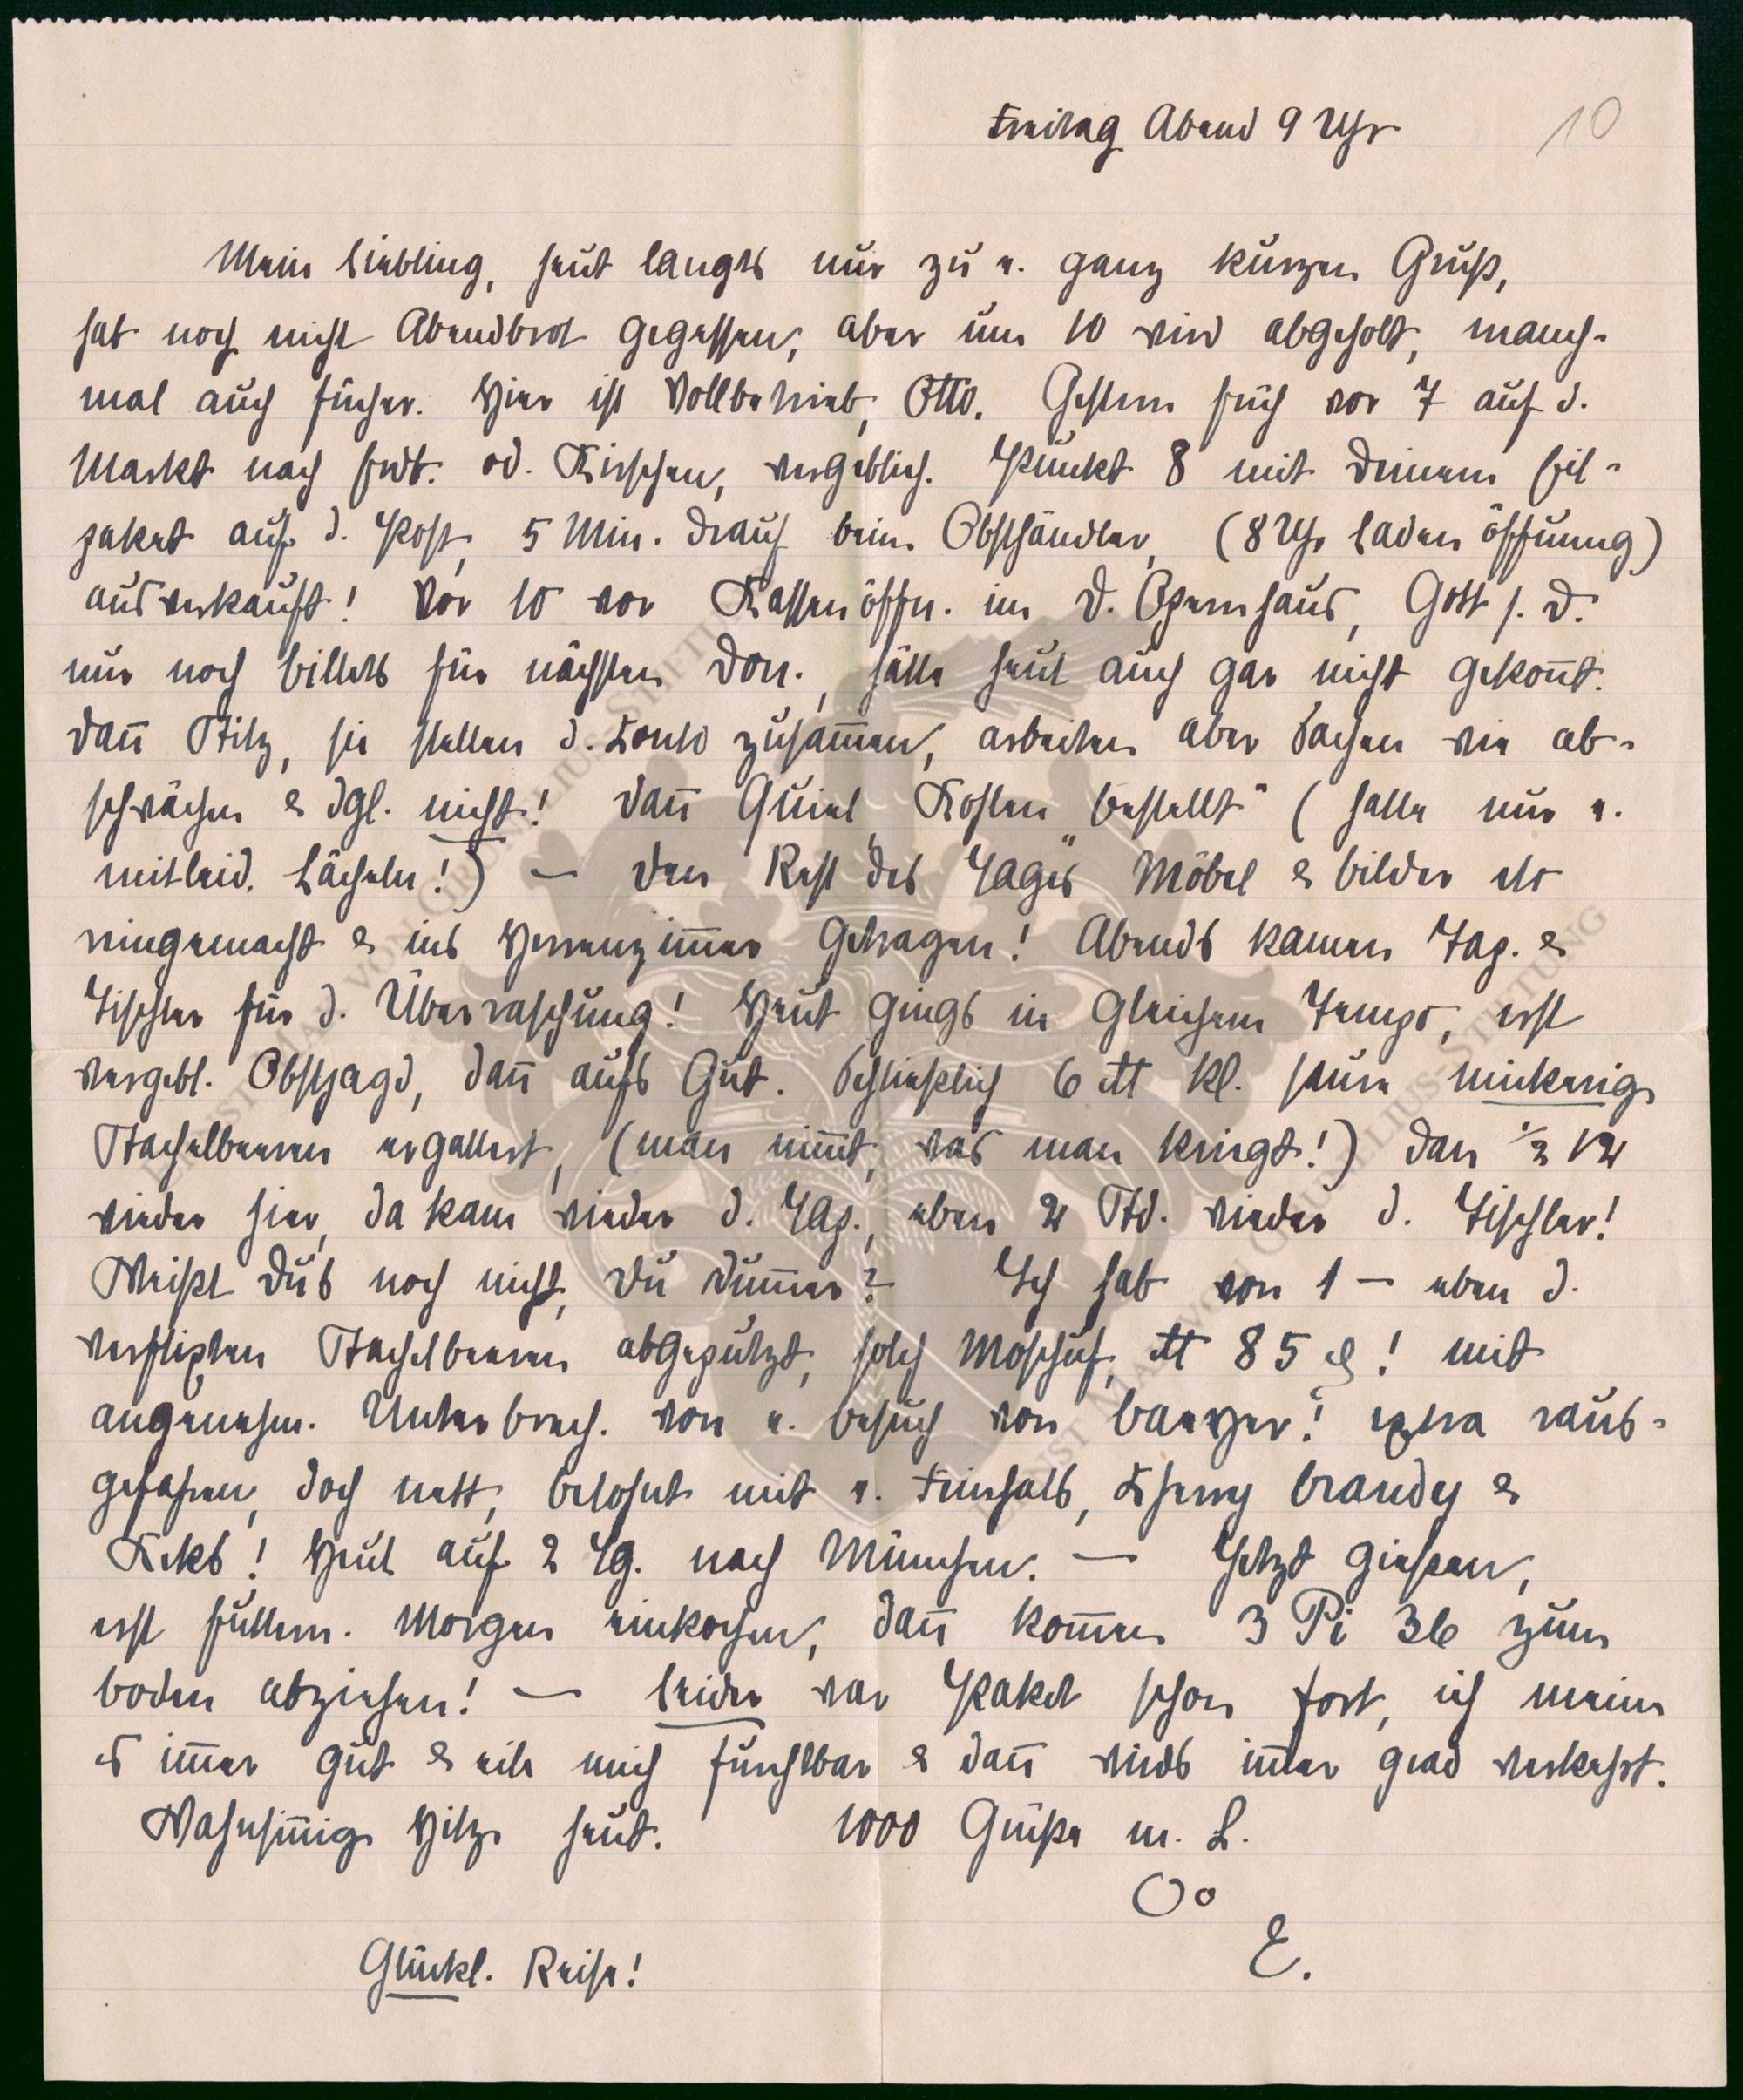 Freitag Abend 9 Uhr
10
Mein Liebling, heut langts nur zu e. ganz kurzen Gruß,
hab noch nicht Abendbrot gegessen, aber um 10 wird abgeholt, manch-
mal auch früher. Hier ist Vollbetrieb, Otto. Gestern früh vor 7 auf d.
Markt nach Erdb. od. Kirschen, vergeblich. Punkt 8 mit Deinem Eil-
paket auf d. Post, 5 Min. drauf beim Obsthändler, (8 Uhr Laden öffnung)
ausverkauft! Vor 10 vor Kassenöffn. im D. Opernhaus, Gott s. D.
nur noch Billets für nächsten Don., hätte heut auch gar nicht gekon̄t.
Dan̄ Stilz, sie stellen d. Conto zusam̄en, arbeiten aber Sachen wie ab-
schrächen & dgl. nicht! Dan̄ Quiel „Kohlen bestellt“ (hatte nur e.
mitleid. Lächeln!) — Den Rest des Tages Möbel & Bilder etc
eingemacht & ins Herrenzim̄er getragen! Abends kamen Tap. &
Tischler für d. Überraschung! Heut gings in gleichem Tempo, erst
vergebl. Obstjagd, dan̄ aufs Gut. Schließlich 6 ℔ kl. saure mickerige
Stachelbeeren ergattert, (man nim̄t, was man kriegt!) Dan ½ 12
wieder hier, da kam wieder d. Tap., eben 2 Std. wieder d. Tischler!
Weißt Du's noch nicht, Du Dum̄er? Ich hab von 1 — eben d.
verflixten Stachelbeeren abgeputzt, solch Moschuf, ℔ 85 ₰! mit
angenehm. Unterbrech. von e. Besuch von Baeyer! extra raus-
gefahren, doch nett, belohnt mit e. Trinhalb, Cherry Brandy &
Keks! Heut auf 2 Tg. nach München. — Jetzt gießen,
erst füttern. Morgen einkochen, dan̄ kom̄en 3 Pi 36 zum
Boden abziehen! — Leider war Paket schon fort, ich meine
es im̄er gut & eile mich furchtbar & dan̄ wirds im̄er grad verkehrt.
Wahnsin̄ige Hitze heut. 1000 Grüße m. L.
Oo
E.
Glückl. Reise!